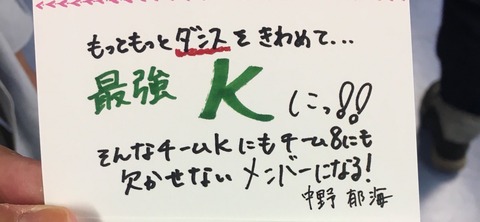 もっともっとダンスをきわめて...
最強 K にっ!!
そんなチームKにもチーム8にも
欠かせないメンバーになる!
中野 郁海